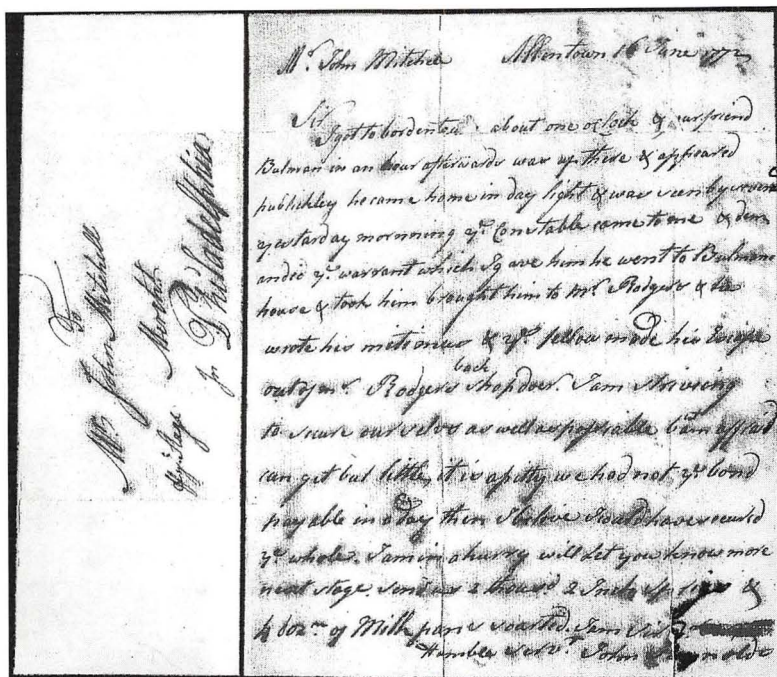 To
Mr. John Mitchell
Mercht.
pr. ye. Stage In Philadelphia
Mr. John Mitchel Allentown 16 June 1772
Sir
I got to bordentou about one o Clock & our friend
Bulman in an hour afterwards was up there & appeared
publickley he came home in day light & was seen by seven
yastarday mornning ye. Constable came to me & dem
anded ye. warrant which I gave him he went to Bulmans
house & took him brought him to Mr. Rodgers & he
wrote his mitemus & ye. fellow made his Escape
back
out of Mr. Rodgers shop door. I am striveing
to secure ourselves as well as popsable b am affraid
can get but little, it is a pitty we had not ye. bond
payable in a day then I beleve I could have secured
ye. whole. I am in a hurry will let you know more
next stage. Send us 2 thousd. 2 Inch &
4 doz.n of Milk pans soarted. I am Sir
Humble Servt. John Reynolds